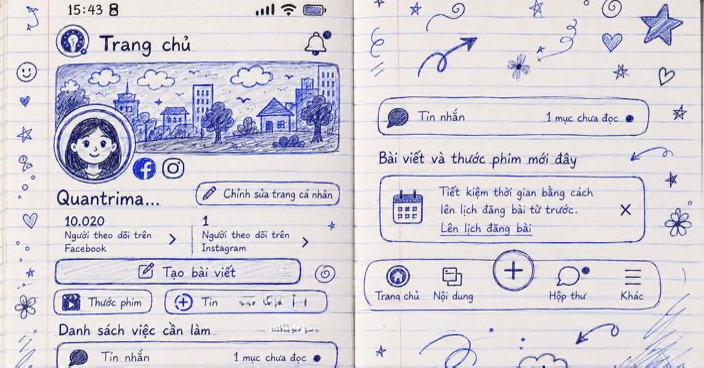 15:43
Trang chủ
Quantrima...
Chỉnh sửa trang cá nhân
10.020
Người theo dõi trên
Facebook
1
Người theo dõi trên
Instagram
Tạo bài viết
Thước phim
Tin
Danh sách việc cần làm
Tin nhắn
1 mục chưa đọc
Tin nhắn
1 mục chưa đọc
Bài viết và thước phim mới đây
Tiết kiệm thời gian bằng cách
lên lịch đăng bài từ trước.
Lên lịch đăng bài
Trang chủ
Nội dung
Hộp thư
Khác